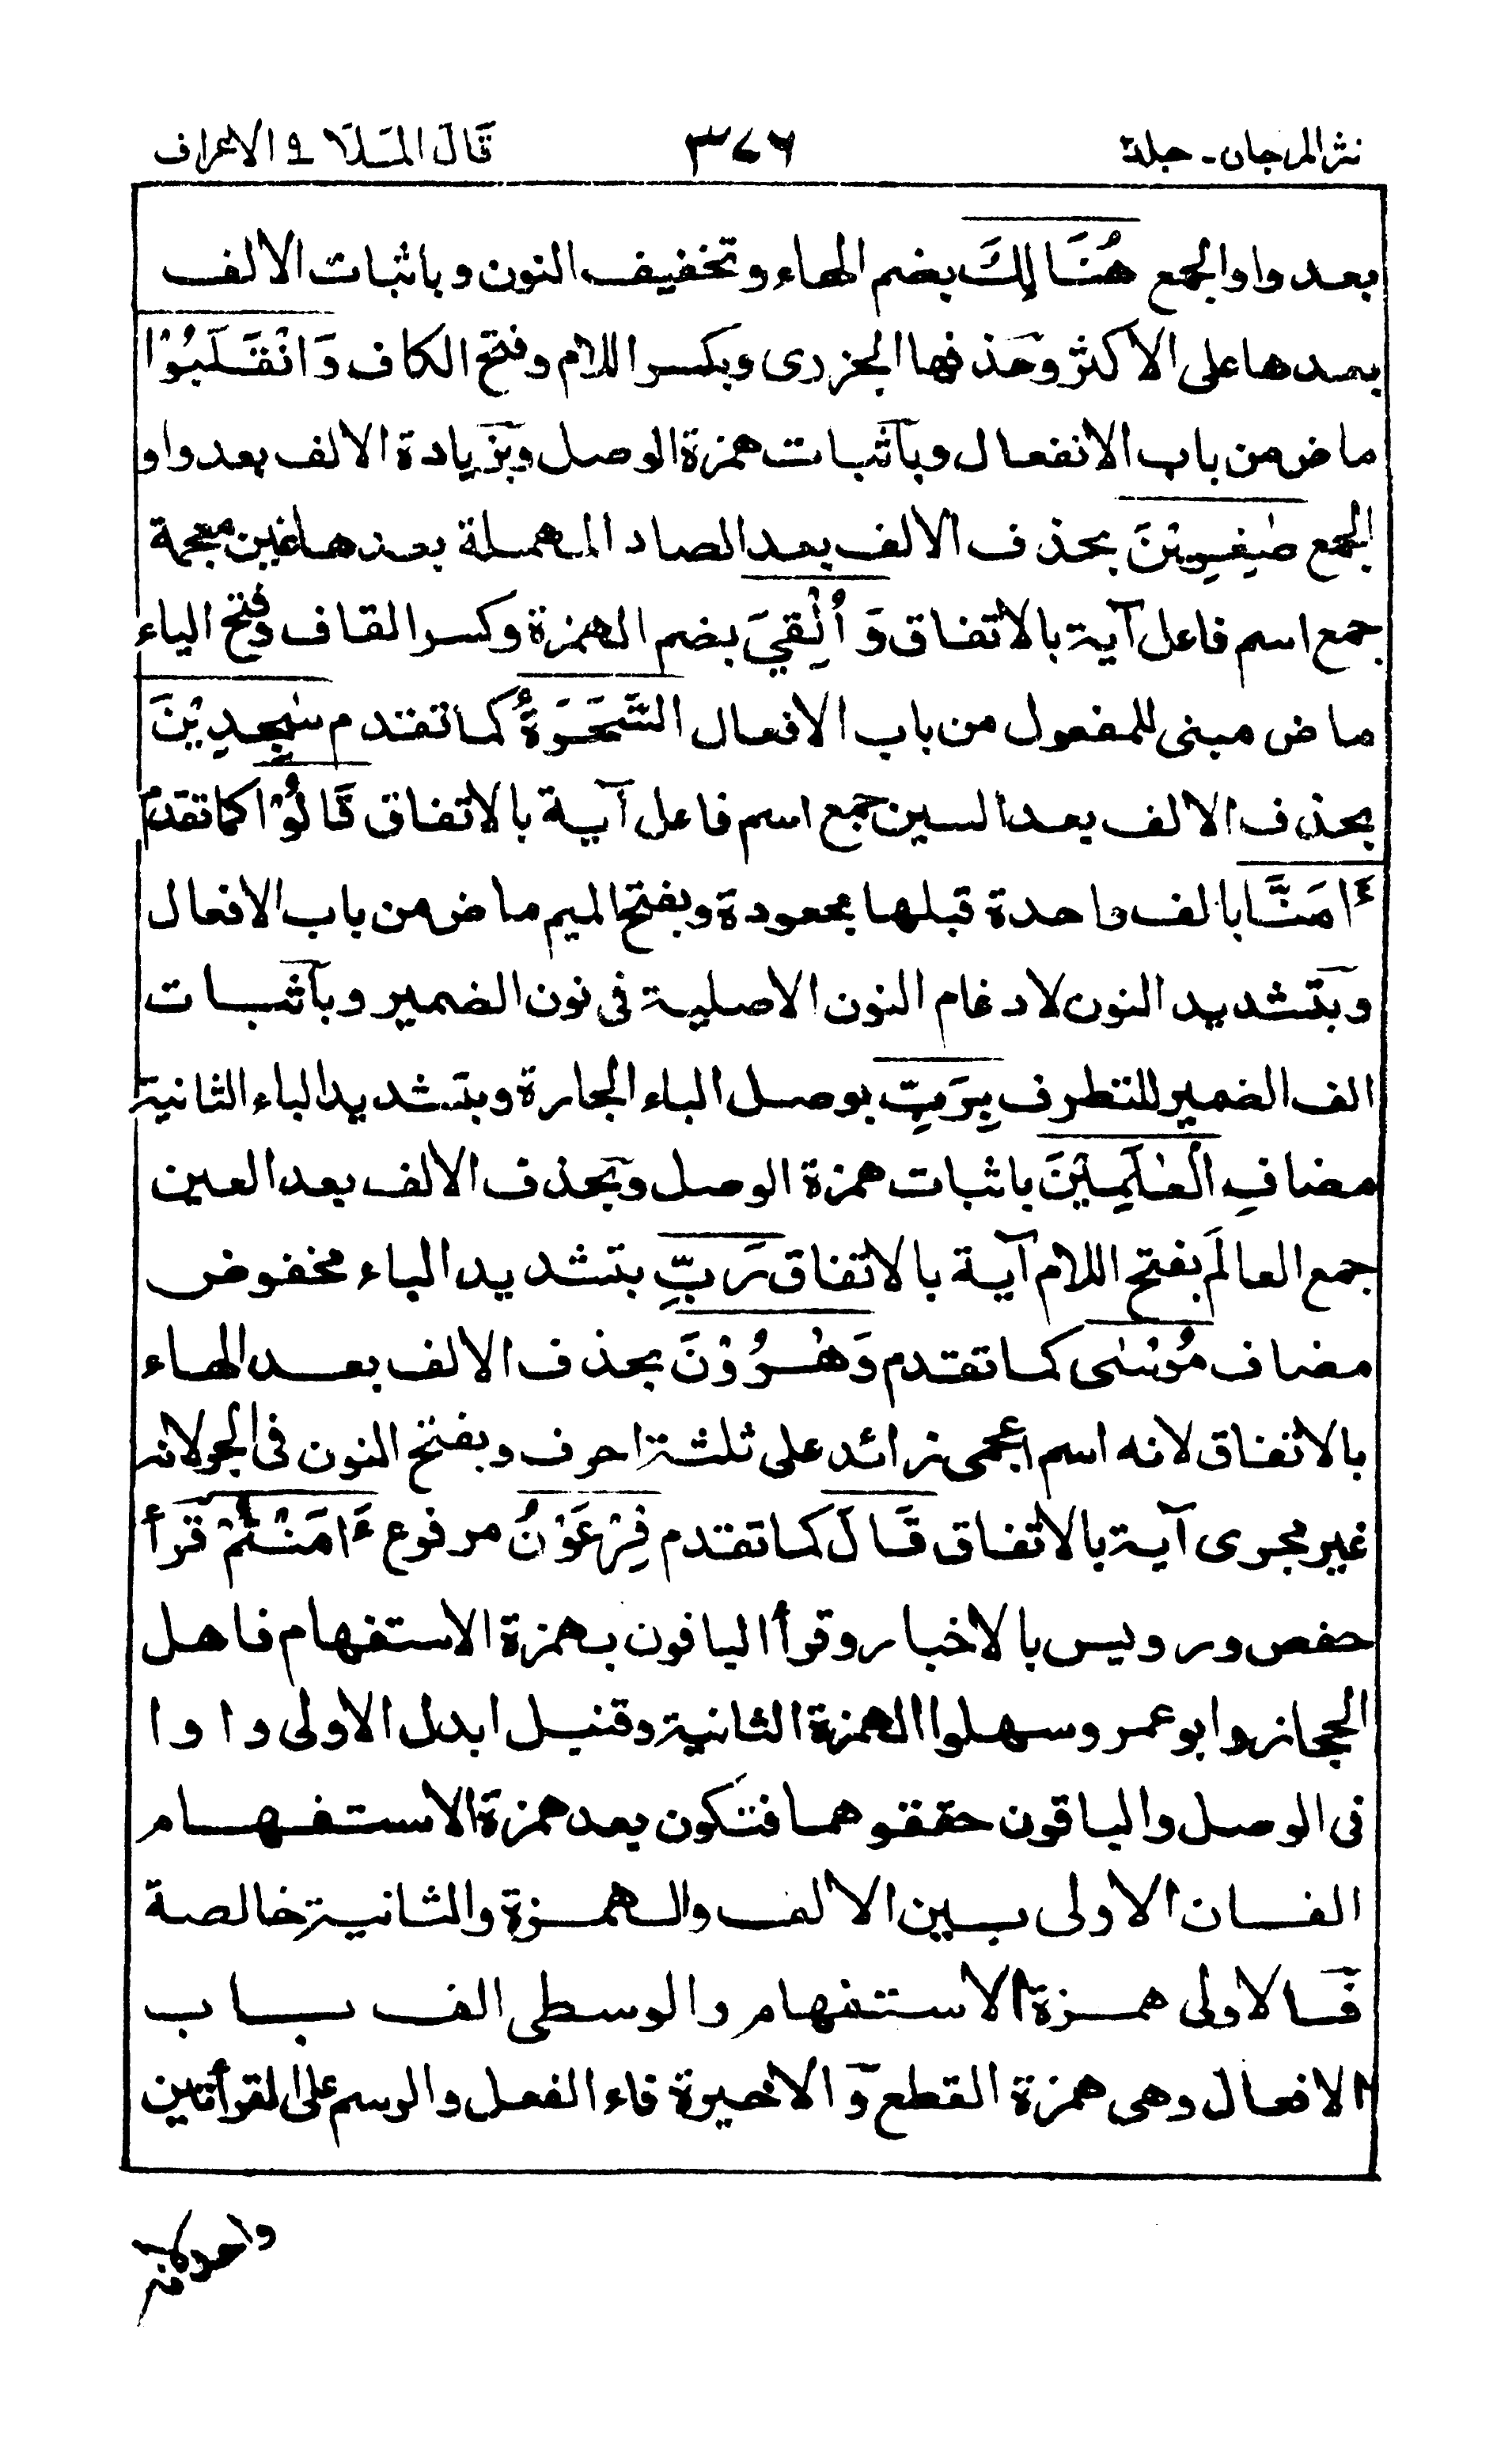 نثر المرجان - جلد٢
٣٧٦
قَالَ المَلَأ ٩ الاعراف
بعد واو الجمع هُنَالِكَ بضم الهاء وتخفيف النون وباثبات الالف
بعدها على الاكثر وحذفها الجزرى وبكسر اللام وفتح الكاف وَانْقَلَبُوْا
ماض من باب الانفعال وباثبات همزة الوصل وبزيادة الالف بعد واو
الجمع صٰغِرِيْنَ بحذف الالف بعد الصاد المهملة بعدها غين معجمة
جمع اسم فاعل آية بالاتفاق وَاُلْقِيَ بضم الهمزة وكسر القاف وفتح الياء
ماض مبنى للمفعول من باب الافعال السَّحَرَةُ كما تقدم سٰجِدِيْنَ
بحذف الالف بعد السين جمع اسم فاعل آية بالاتفاق قَالُوْا كما تقدم
ءَامَنَّا بالف واحدة قبلها مجعودة وبفتح الميم ماض من باب الافعال
وبتشديد النون لادغام النون الاصلية فى نون الضمير وباثبات
الف الضمير للتطرف بِرَبِّ بوصل الباء الجارة وبتشديد الباء الثانية
مضافِ الْعٰلَمِيْنَ باثبات همزة الوصل وبحذف الالف بعد العين
جمع العالَم بفتح اللام آية بالاتفاق رَبِّ بتشديد الباء مخفوض
مضاف مُوْسٰى كما تقدم وَهٰرُوْنَ بحذف الالف بعد الهاء
بالاتفاق لانه اسم اعجمى زائد على ثلثة احرف وبفتح النون فى الجر لانه
غير مجرى آية بالاتفاق قَالَ كما تقدم فِرْعَوْنُ مرفوع ءَامَنْتُمْ قرأ
حفص ورويس بالاخبار وقرأ الباقون بهمزة الاستفهام فاهل
الحجاز وابو عمرو سهلوا الهمزة الثانية وقنبل ابدل الاولى واوا
فى الوصل والباقون حققوهما فتكون بعد همزة الاستفهام
الفان الاولى بين الالف والهمزة والثانية خالصة
فالاولى همزة الاستفهام والوسطى الف باب
الافعال وهى همزة القطع والاخيرة فاء الفعل والرسم على القرأتين